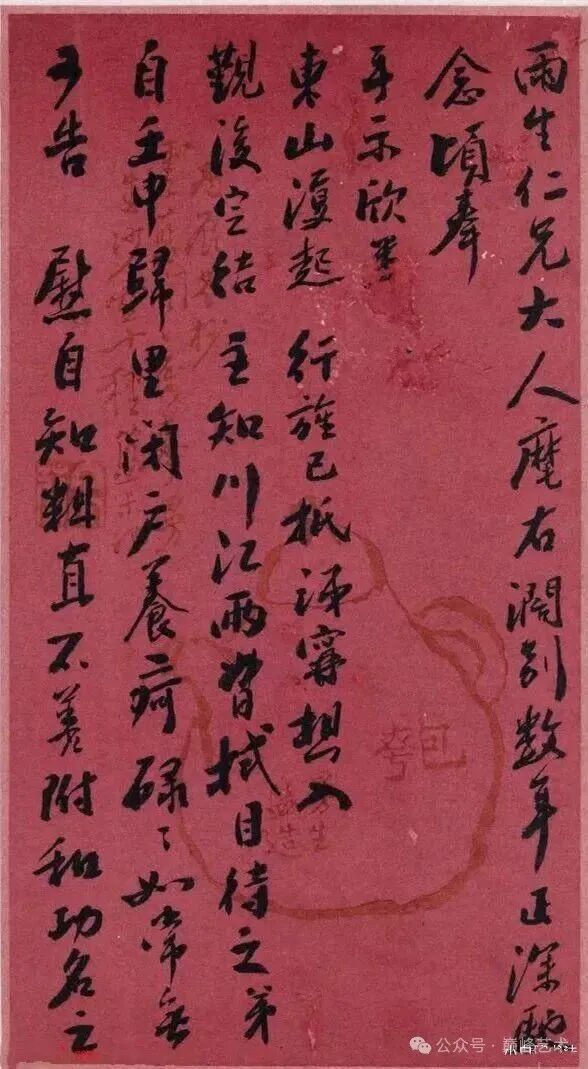 雨生仁兄大人麾右濶別数年正深馳
念頃奉
手示欣悉
東山復起 行旌已抵 想入
覲後定結 主知川江兩督拭目待之弟
自壬申歸里閉户養疴碌〻如常無
可告 慰自知粗直不善附和功名之
公众号 · 巅峰艺术